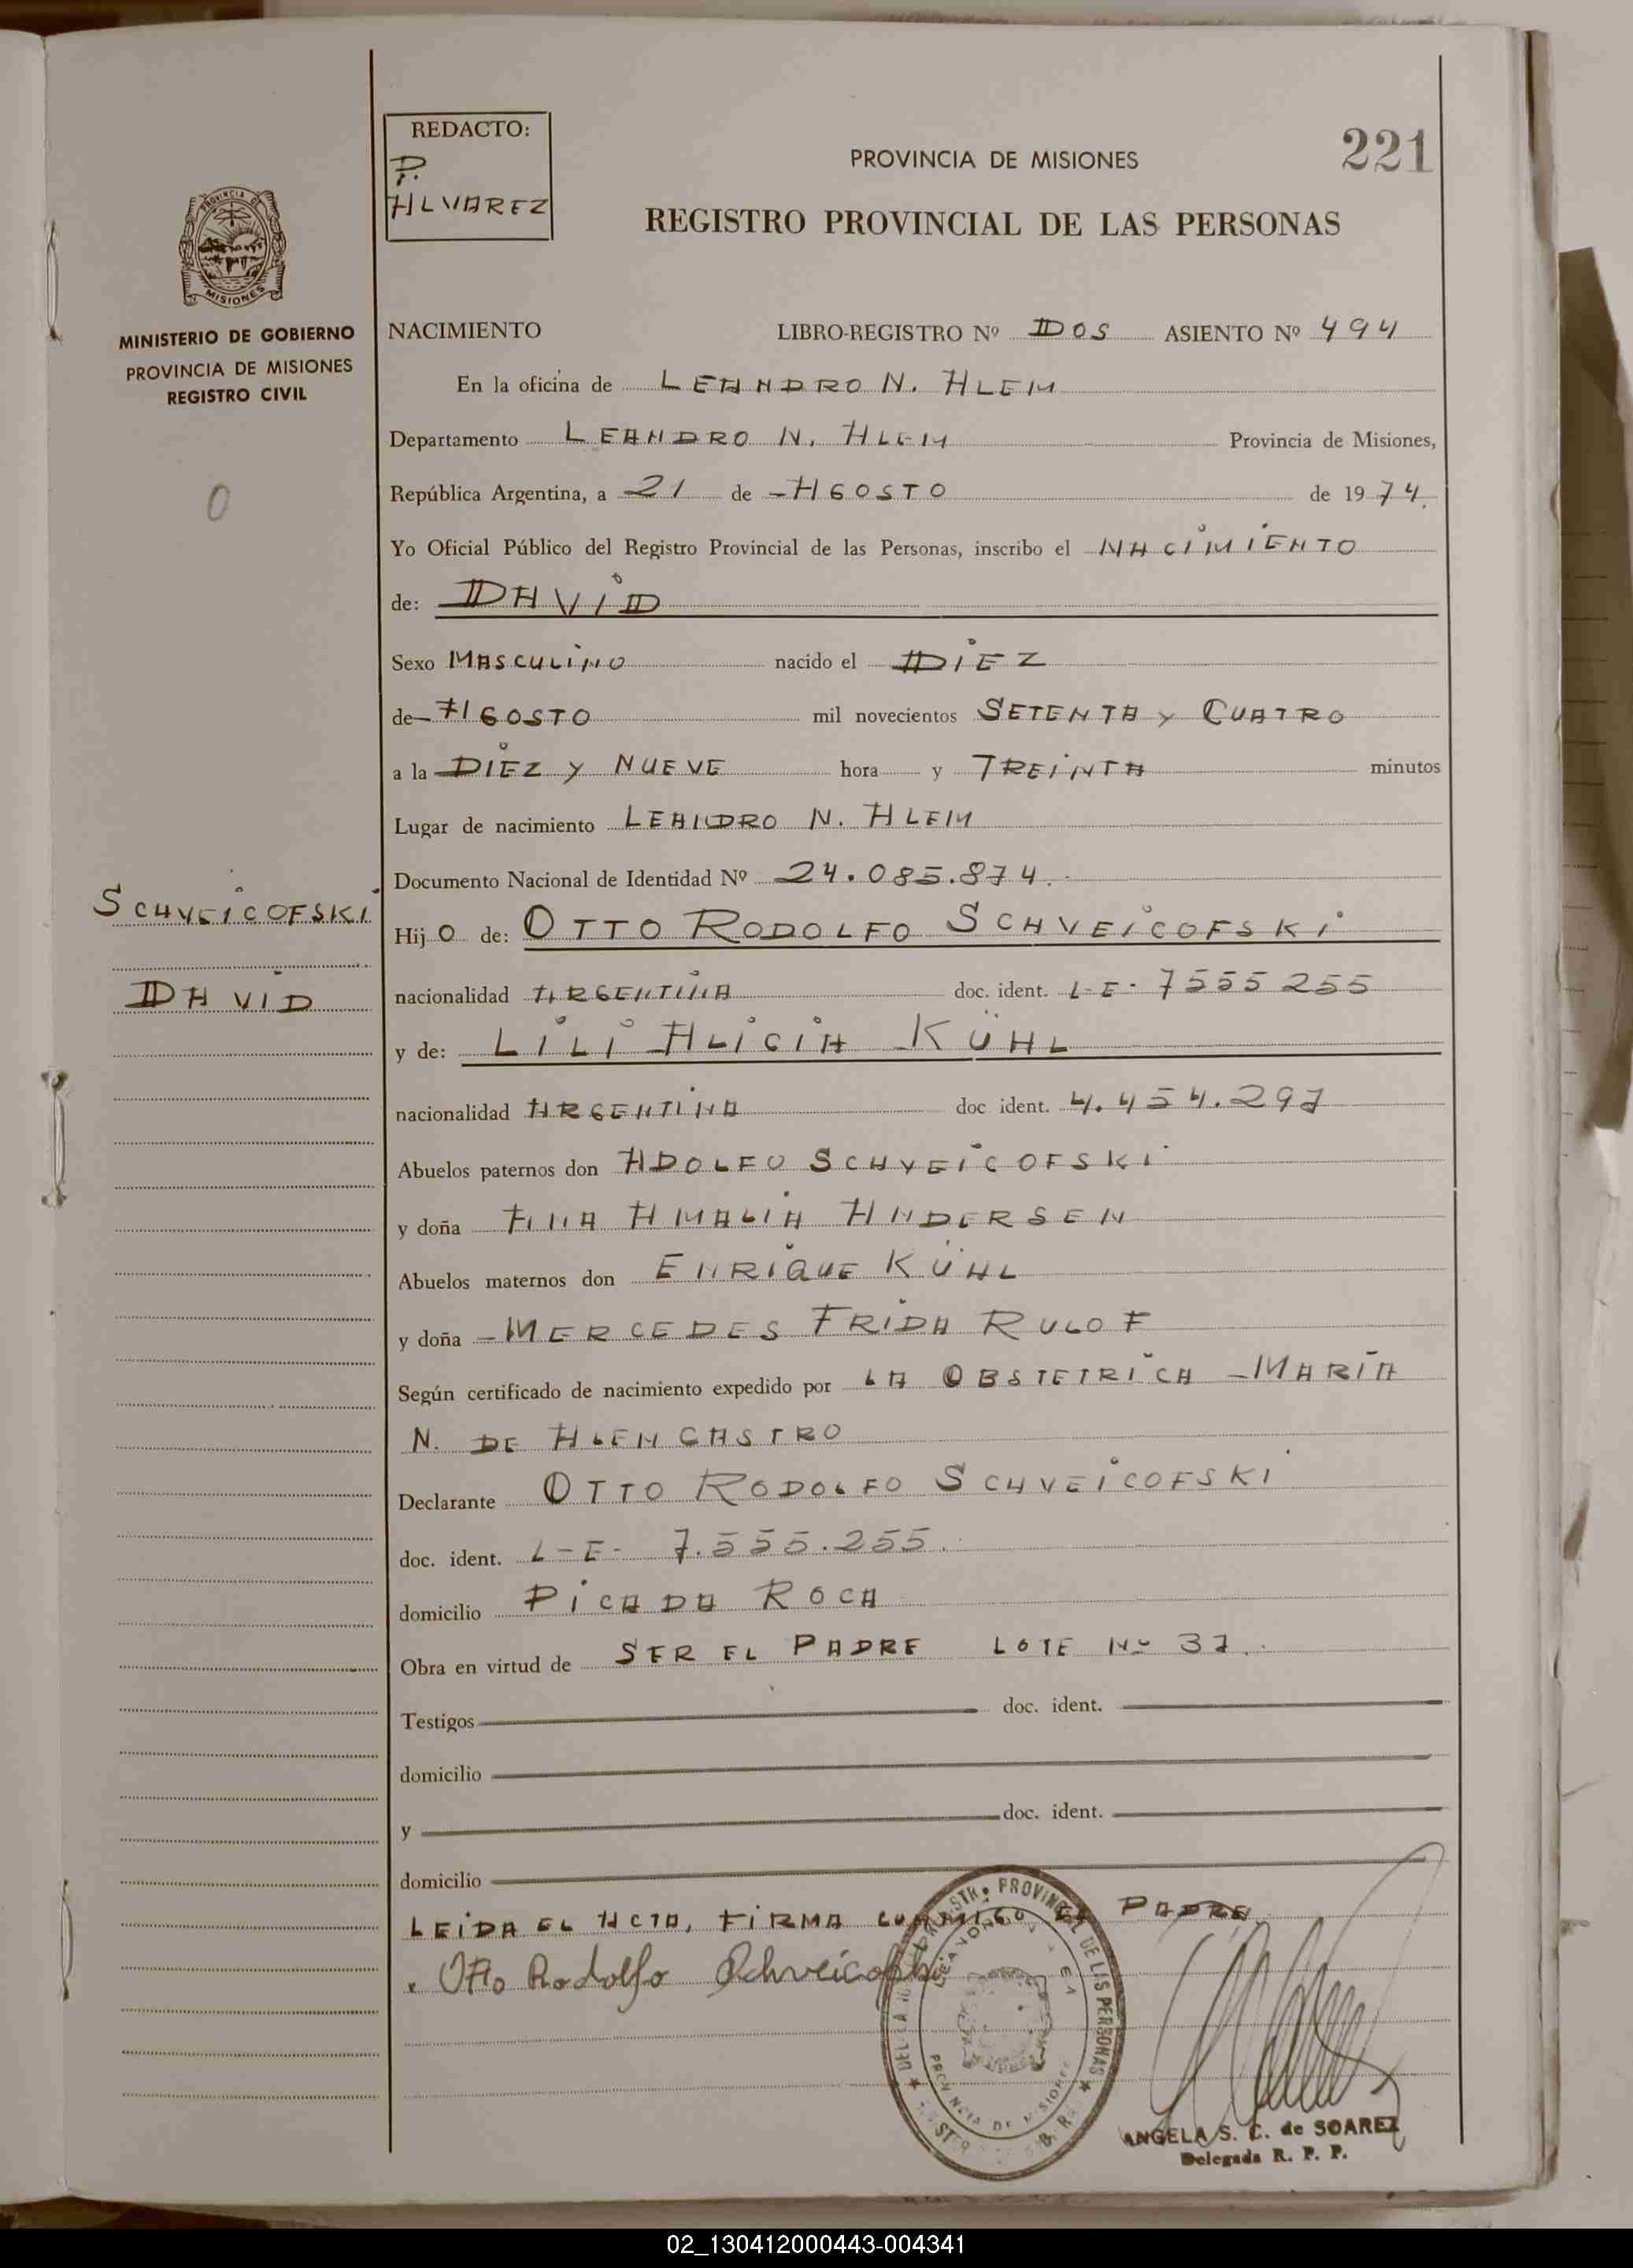 REDACTO:
P.
ALVAREZ
PROVINCIA DE MISIONES
221
REGISTRO PROVINCIAL DE LAS PERSONAS
PROVINCIA DE
MISIONES
MINISTERIO DE GOBIERNO
PROVINCIA DE MISIONES
REGISTRO CIVIL
0
NACIMIENTO LIBRO-REGISTRO Nº DOS ASIENTO Nº 494
En la oficina de LEANDRO N. ALEM
Departamento LEANDRO N. ALEM Provincia de Misiones,
República Argentina, a 21 de AGOSTO de 1974.
Yo Oficial Público del Registro Provincial de las Personas, inscribo el NACIMIENTO
de: DAVID
Sexo MASCULINO nacido el DIEZ
de AGOSTO mil novecientos SETENTA Y CUATRO
a la DIEZ Y NUEVE hora y TREINTA minutos
Lugar de nacimiento LEANDRO N. ALEM
Documento Nacional de Identidad Nº 24.085.874.
SCHVEICOFSKI
DAVID
Hij O de: OTTO RODOLFO SCHVEICOFSKI
nacionalidad ARGENTINA doc. ident. L-E- 7555255
y de: LILI ALICIA KÜHL
nacionalidad ARGENTINA doc ident. 4.454.297
Abuelos paternos don ADOLFO SCHVEICOFSKI
y doña ANA AMALIA ANDERSEN
Abuelos maternos don ENRIQUE KÜHL
y doña MERCEDES FRIDA RULOF
Según certificado de nacimiento expedido por LA OBSTETRICA MARIA
N. DE ALENCASTRO
Declarante OTTO RODOLFO SCHVEICOFSKI
doc. ident. L-E- 7.555.255.
domicilio PICADA ROCA
Obra en virtud de SER EL PADRE LOTE Nº 37.
Testigos doc. ident.
domicilio
y doc. ident.
domicilio
LEIDA EL ACTA, FIRMA CONMIGO EL PADRE
Otto Rodolfo Schveicofski
PROVINCIAL DE LAS PERSONAS
PROVINCIA DE MISIONES
ANGELA S. C. de SOAREZ
Delegada R. P. P.
02_130412000443-004341